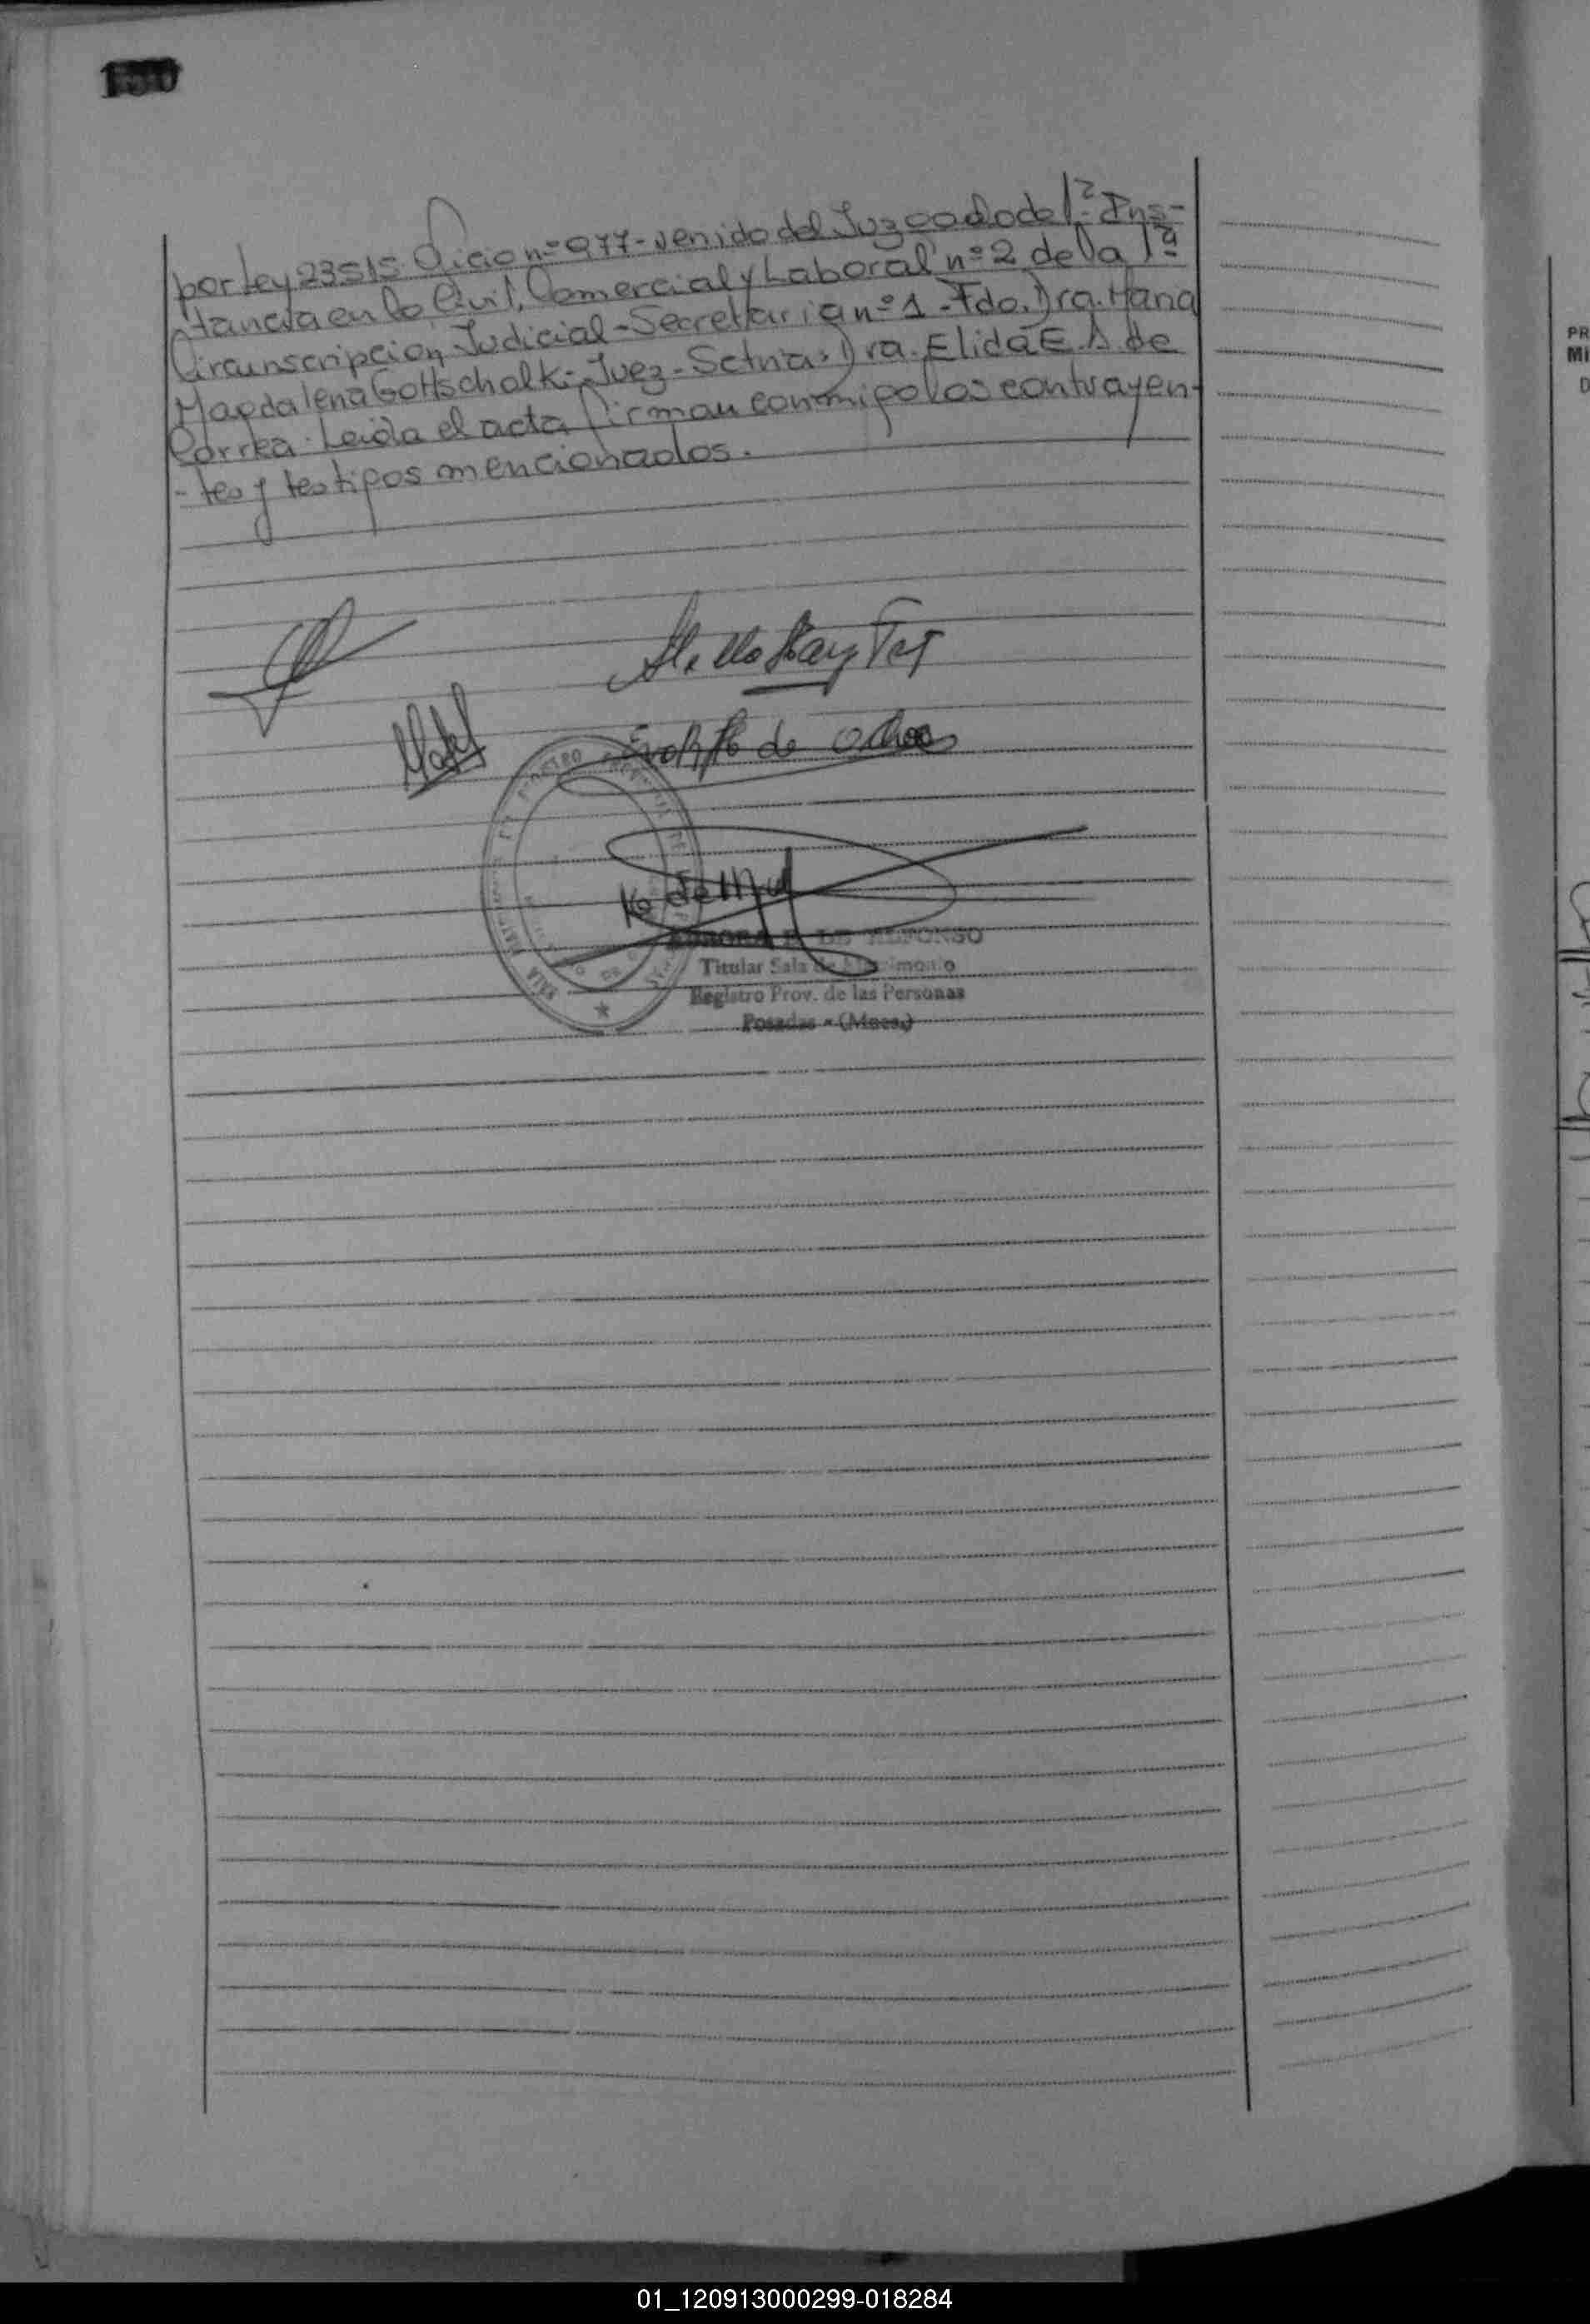 150
por Ley 23515. Oficio nº 977 - venido del Juzgado de 1ª Ins-
tancia en lo Civil, Comercial y Laboral nº 2 de la 1ª
Circunscripcion Judicial - Secretaria nº 1 - Fdo. Dra. Maria
Magdalena Gottschalk - Juez - Setria. Dra. Elida E. A de
Correa. Leida el acta firman conmigo los contrayen-
- tes y testigos mencionados.
de Ochoa
AURORA F. DE ALFONSO
Titular Sala de Matrimonio
Registro Prov. de las Personas
Posadas - (Mnes.)
PR
MI
D
01_120913000299-018284